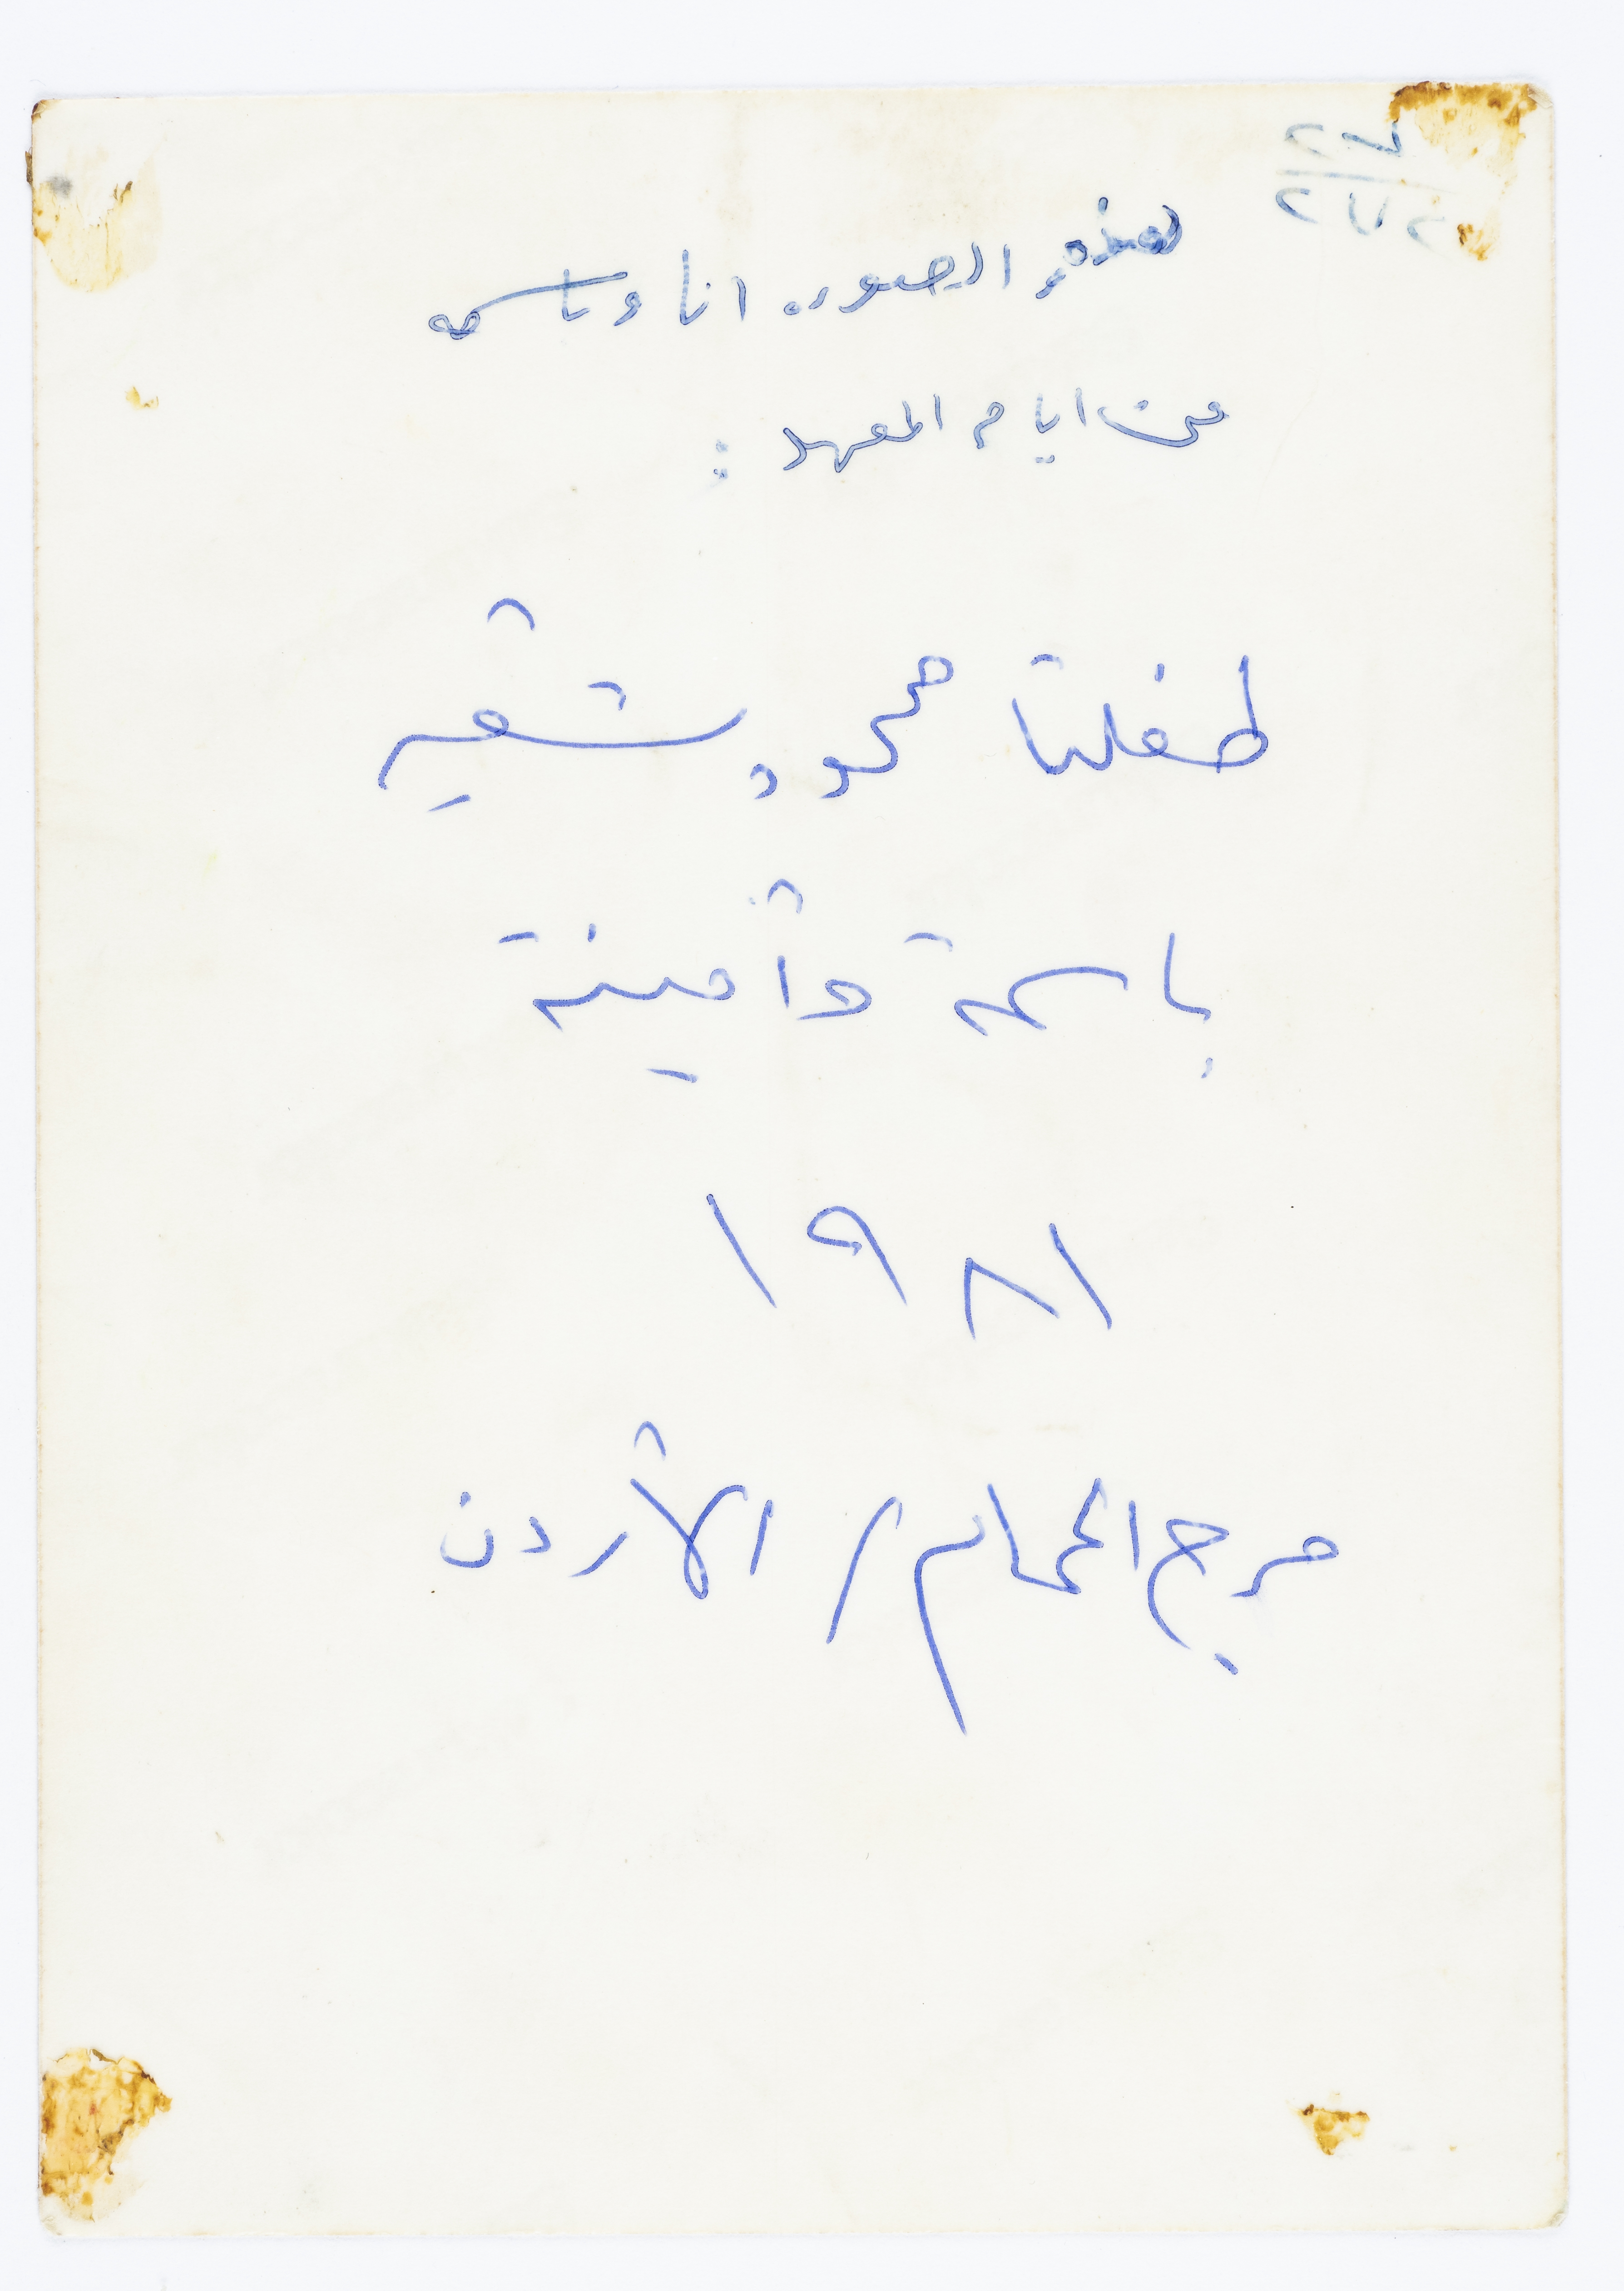 هذه الصوره انا وباسمه
من ايام المعهد :
طفلتا محمود شقير
باسمة وأمينة
١٩٨١
مرج الحمام / الأردن